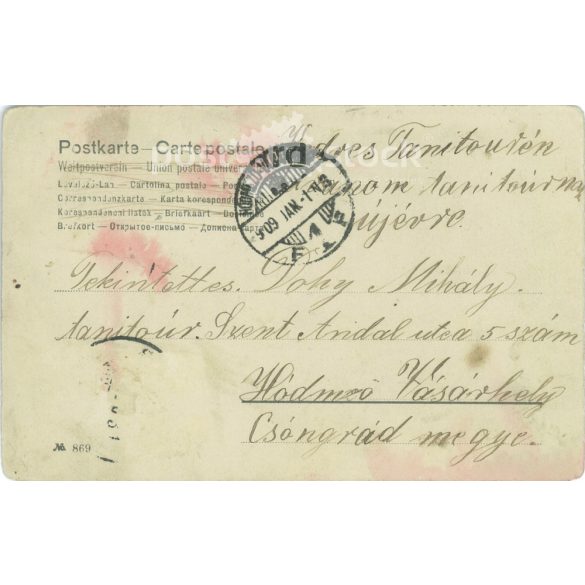 Postkarte – Carte postale
Weltpostverein – Union postale univers
Levelező-Lap – Cartolina postale – Po
Correspondenzkarte – Karta korespond
Korespondenční listek – Briefkaart – Dopisnica
Brefkort – Открытое письмо – Дописна карта
Kedves Tanitourén
tanitourn
újévre.
909 JAN. -1
Tekintettes. Dohy Mihály.
tanitóúr. Szent Andal utca 5 szám
Hódmező Vásárhely
Csongrád megye.
№ 869